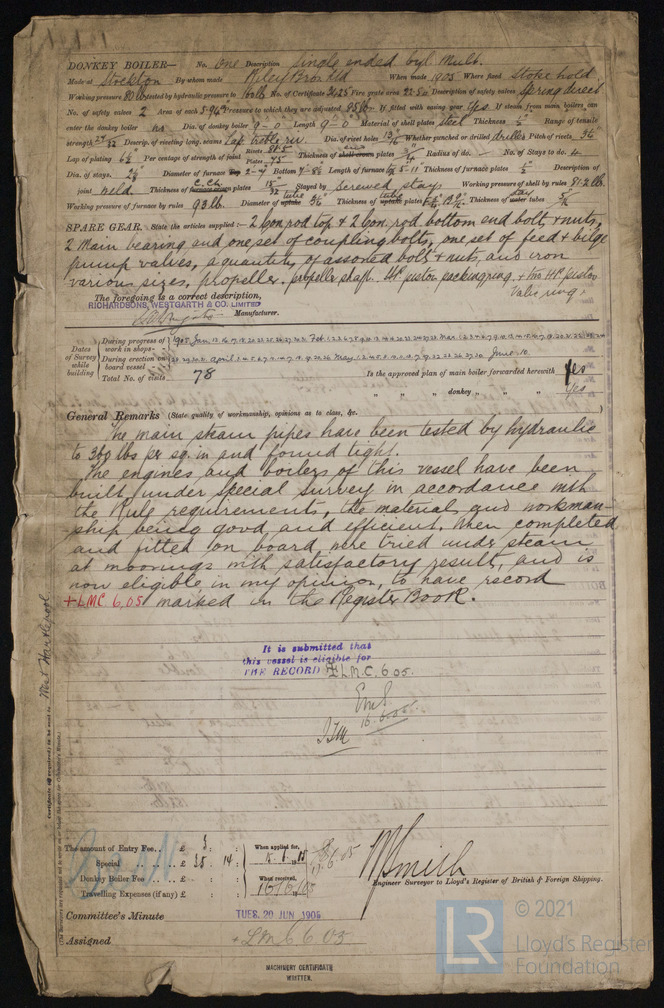 DONKEY BOILER— No. One Description Single ended cyl Mult.
Made at Stockton By whom made Riley Bros Ltd When made 1905 Where fixed Stokehold
Working pressure 80 lb tested by hydraulic pressure to 160 lb No. of Certificate 3425 Fire grate area 22.50 Description of safety valves Spring direct
No. of safety valves 2 Area of each 5.94" Pressure to which they are adjusted 85 lb If fitted with easing gear Yes If steam from main boilers can
enter the donkey boiler no Dia. of donkey boiler 9-0 Length 9-0 Material of shell plates Steel Thickness Range of tensile
strength 27/32 Descrip. of riveting long. seams Lap treble riv. Dia. of rivet holes 13/16 Whether punched or drilled drilled Pitch of rivets
Lap of plating Per centage of strength of joint Rivets 81.5 Plates 75 Thickness of shell crown plates Radius of do. No. of Stays to do. 4
Dia. of stays. Diameter of furnace Top 2-4 Bottom Length of furnace Thickness of furnace plates 1/2 Description of
joint weld. Thickness of furnace crown plates C.Ch. 15/32 Stayed by Screwed stays Working pressure of shell by rules
Working pressure of furnace by rules 93 lb. Diameter of uptake tube Thickness of uptake plates tube Thickness of water tubes stay 5/16
SPARE GEAR. State the articles supplied:— 2 Con. rod top & 2 Con. rod bottom end bolts & nuts,
2 Main bearing and one set of coupling bolts, one set of feed & bilge
pump valves, a quantity of assorted bolts & nuts, and iron
various sizes, propeller, propeller shaft. HP piston packing ring, & two HP piston
valve rings.
The foregoing is a correct description,
RICHARDSONS, WESTGARTH & CO. LIMITED
Manufacturer.
Dates of Survey while building
During progress of work in shops--
1905 Jan. Feb. Mar.
During erection on board vessel
April May June 10.
Total No. of visits 78 Is the approved plan of main boiler forwarded herewith Yes
" " " donkey " " " Yes
General Remarks (State quality of workmanship, opinions as to class, &c.
The main steam pipes have been tested by hydraulic
to 360 lbs per sq. in and found tight.
The engines and boilers of this vessel have been
built under Special Survey in accordance with
the Rule requirements, the material and workman-
ship being good and efficient. When completed
and fitted on board, were tried under steam
at moorings with satisfactory result, and is
now eligible in my opinion, to have record
+LMC 6,05 marked in the Register Book.
It is submitted that
this vessel is eligible for
THE RECORD +L.M.C. 6 05.
16.6.05
West Hartlepool
The amount of Entry Fee . . £ 3 : :
Special . . £ 35 : 14 :
Donkey Boiler Fee . . . £ : :
Travelling Expenses (if any) £ : :
When applied for,
When received,
16/6/05
W Smith
Engineer Surveyor to Lloyd's Register of British & Foreign Shipping.
Committee's Minute TUES. 20 JUN 1905
Assigned + LMC 6 05
MACHINERY CERTIFICATE
WRITTEN.
LR
© 2021
Lloyd's Register
Foundation